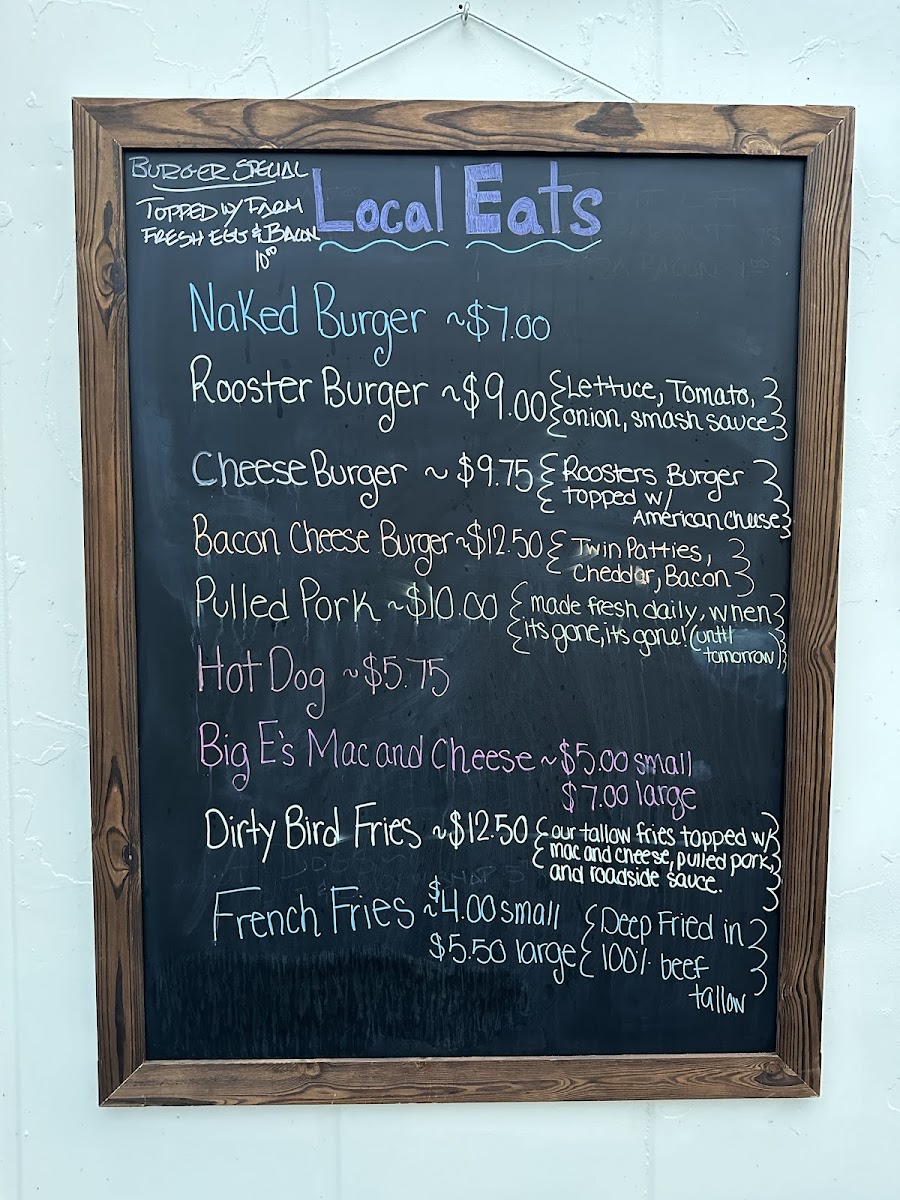 BURGER SPECIAL
TOPPED W/ FARM
FRESH EGG & BACON
10⁰⁰
Local Eats
Naked Burger ~$7.00
Rooster Burger ~$9.00 {Lettuce, Tomato,}
{onion, smash sauce}
Cheese Burger ~ $9.75 {Roosters Burger}
{topped w/
American Cheese}
Bacon Cheese Burger ~$12.50 {Twin Patties,}
{Cheddar, Bacon}
Pulled Pork ~$10.00 {made fresh daily, when}
{its gone, its gone! (until
tomorrow)}
Hot Dog ~$5.75
Big E's Mac and Cheese ~$5.00 small
$7.00 large
Dirty Bird Fries ~$12.50 {our tallow fries topped w/}
{mac and cheese, pulled pork}
and roadside sauce.}
French Fries ~$4.00 small {Deep Fried in}
$5.50 large {100% beef}
tallow